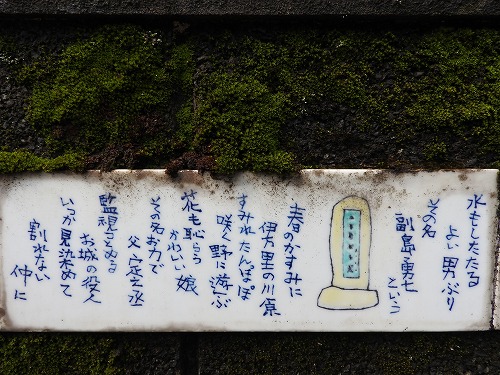 水もしたたる
よい男ぶり
その名
副島勇七
といふ
春のかすみに
伊万里の川原
すみれたんぽぽ
咲く野に遊ぶ
花も恥らう
かわいい娘
その名お力で
父定之丞
監視とめる
お城の役人
いつか見染めて
割れない
仲に